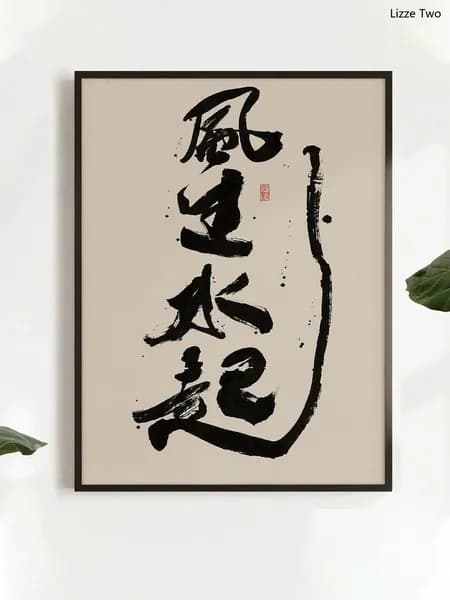 Lizze Two
風生水起